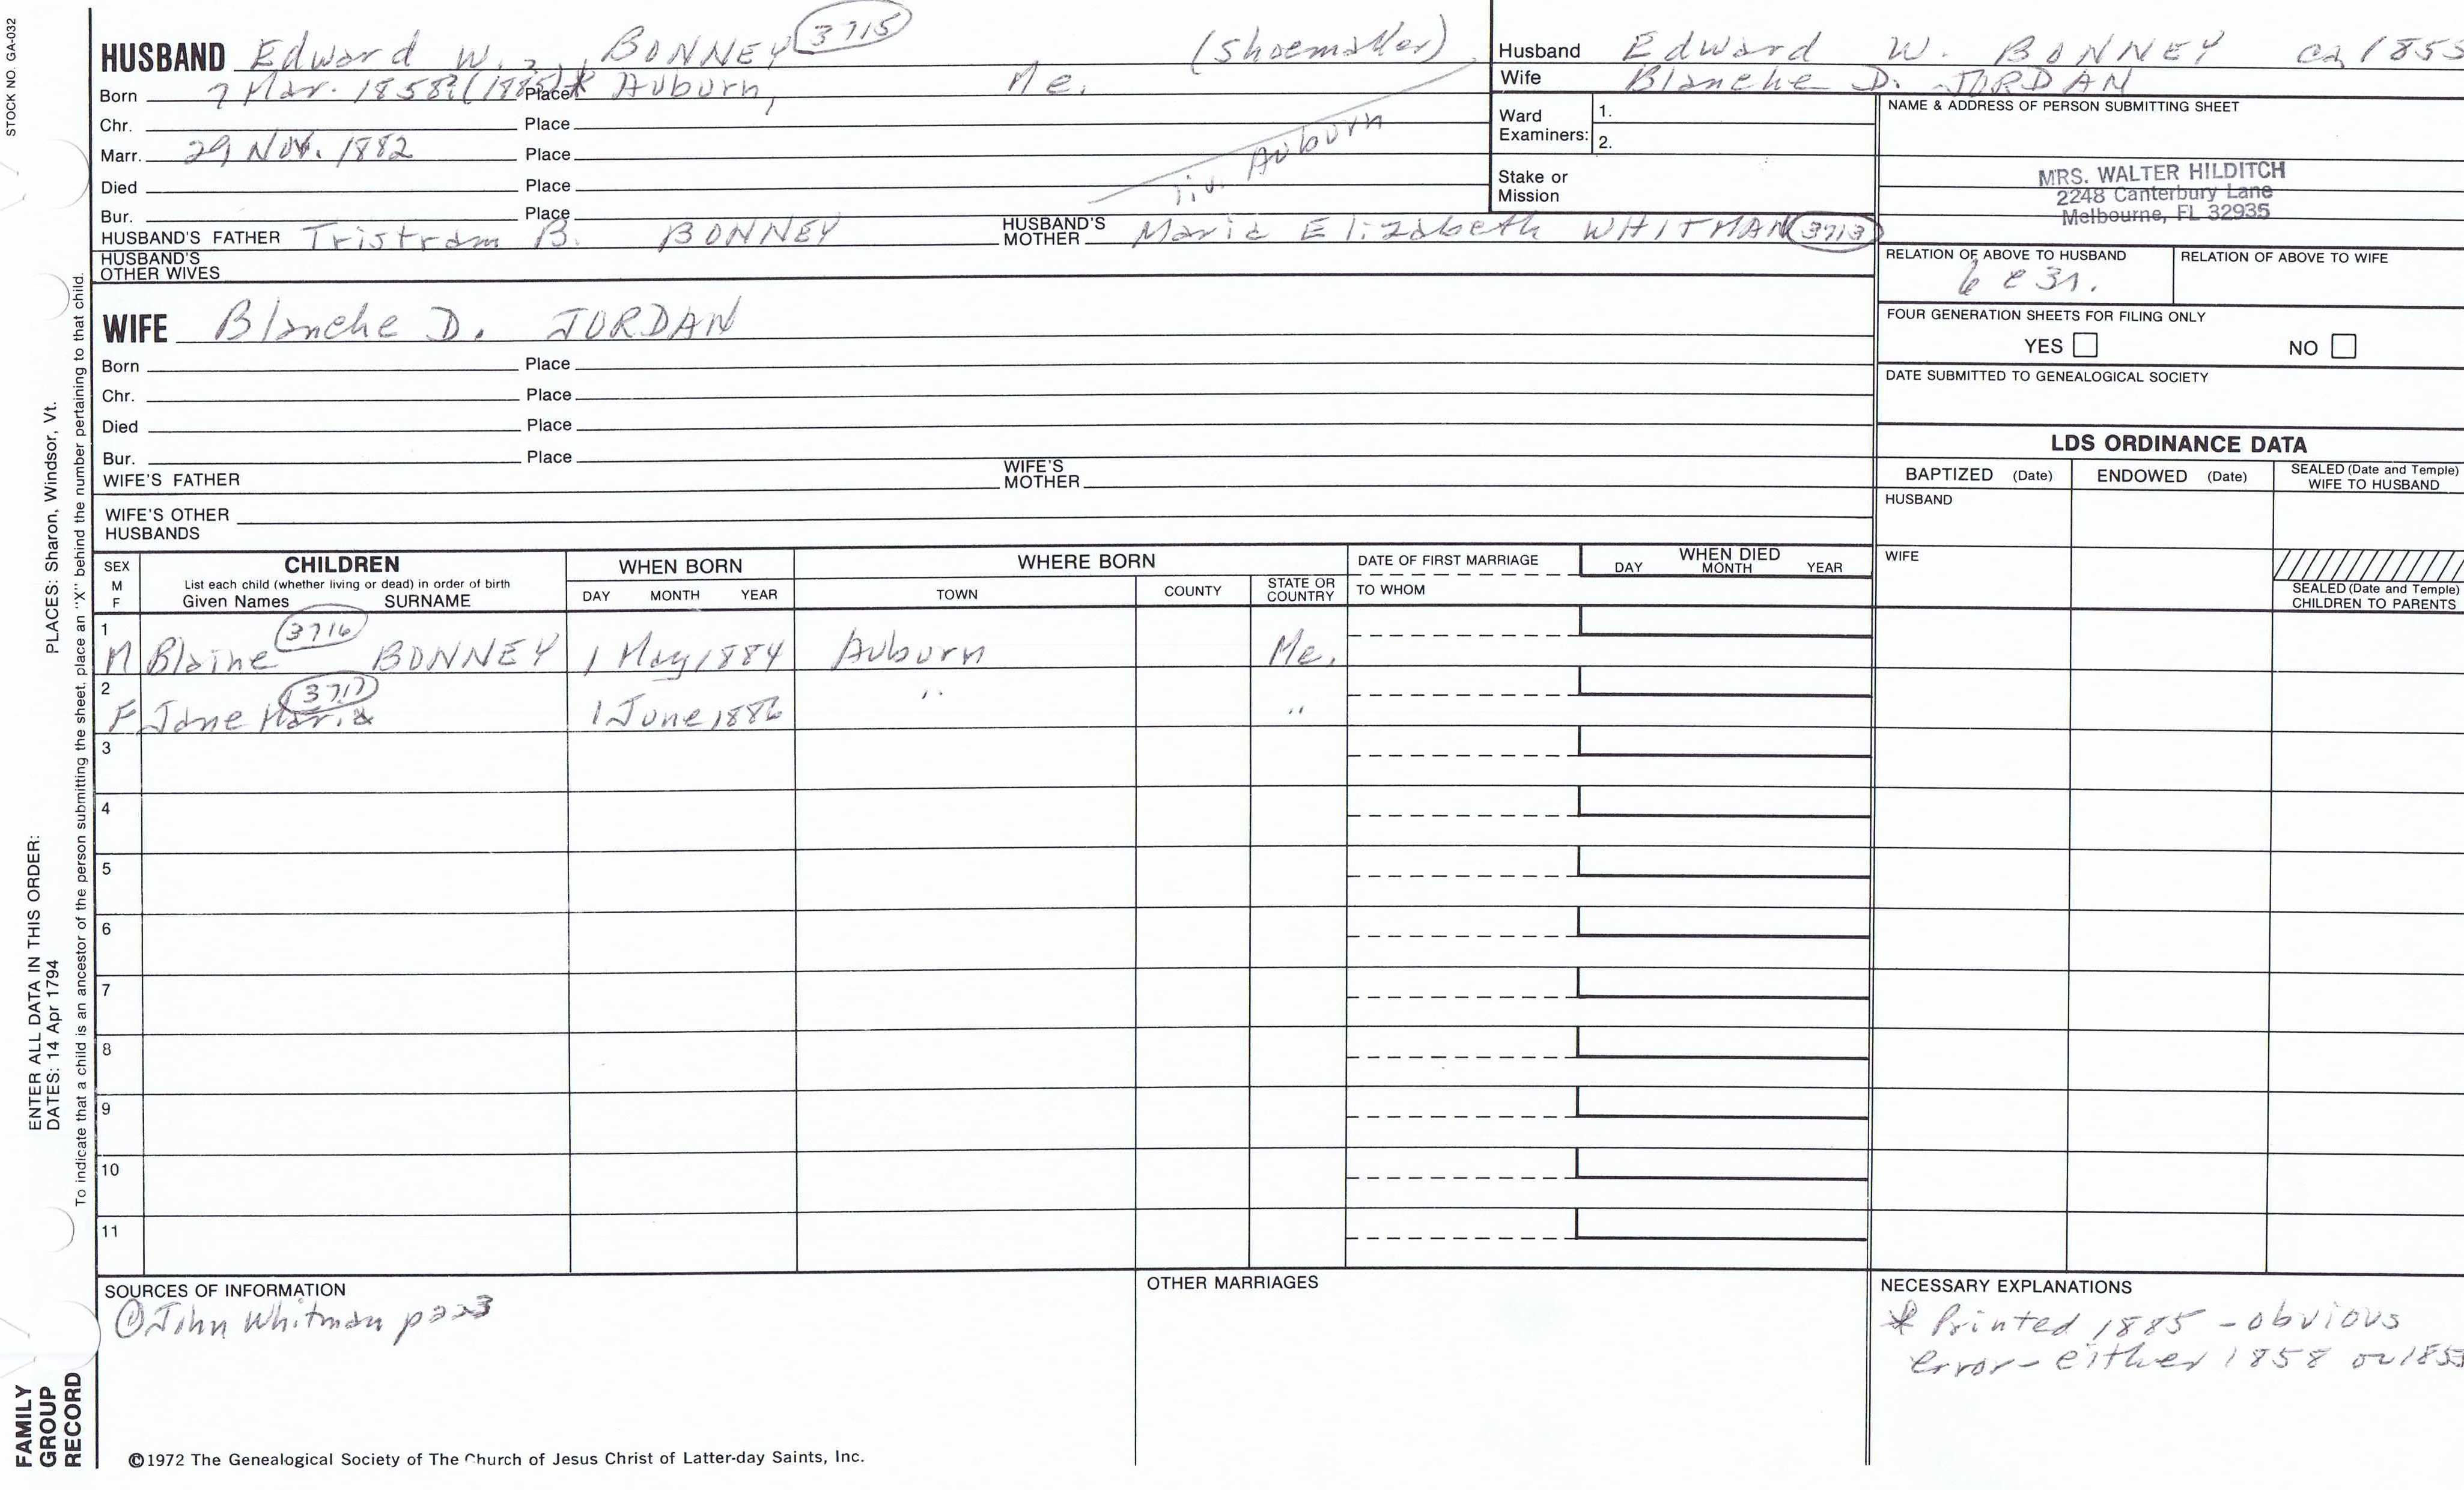 STOCK NO. GA-032
HUSBAND Edward W. BONNEY 3715 (Shoemaker)
Born 7 Mar. 1858?(1885)* Place Auburn, Me.
Chr. Place
Marr. 29 Nov. 1882 Place
liv. Auburn
Died Place
Bur. Place
HUSBAND'S FATHER Tristram B. BONNEY HUSBAND'S MOTHER Maria Elizabeth WHITMAN 3713
HUSBAND'S OTHER WIVES
WIFE Blanche D. JORDAN
Born Place
Chr. Place
Died Place
Bur. Place
WIFE'S FATHER WIFE'S MOTHER
WIFE'S OTHER HUSBANDS
Husband Edward W. BONNEY ca 1855
Wife Blanche D. JORDAN
Ward Examiners: 1.
2.
Stake or Mission
NAME & ADDRESS OF PERSON SUBMITTING SHEET
MRS. WALTER HILDITCH
2248 Canterbury Lane
Melbourne, FL 32935
RELATION OF ABOVE TO HUSBAND RELATION OF ABOVE TO WIFE
6 c 3r.
FOUR GENERATION SHEETS FOR FILING ONLY
YES NO
DATE SUBMITTED TO GENEALOGICAL SOCIETY
LDS ORDINANCE DATA
BAPTIZED (Date) ENDOWED (Date) SEALED (Date and Temple) WIFE TO HUSBAND
HUSBAND
WIFE
SEALED (Date and Temple) CHILDREN TO PARENTS
SEX M F CHILDREN List each child (whether living or dead) in order of birth Given Names SURNAME WHEN BORN DAY MONTH YEAR WHERE BORN TOWN COUNTY STATE OR COUNTRY DATE OF FIRST MARRIAGE TO WHOM WHEN DIED DAY MONTH YEAR
1 M Blaine 3716 BONNEY 1 May 1884 Auburn Me.
2 F Jane Maria 3717 1 June 1886 " "
3
4
5
6
7
8
9
10
11
SOURCES OF INFORMATION
① John Whitman p 223
OTHER MARRIAGES
NECESSARY EXPLANATIONS
* Printed 1885 - obvious
error - either 1858 or 1855
©1972 The Genealogical Society of The Church of Jesus Christ of Latter-day Saints, Inc.
ENTER ALL DATA IN THIS ORDER:
DATES: 14 Apr 1794 PLACES: Sharon, Windsor, Vt.
To indicate that a child is an ancestor of the person submitting the sheet, place an "X" behind the number pertaining to that child.
FAMILY
GROUP
RECORD